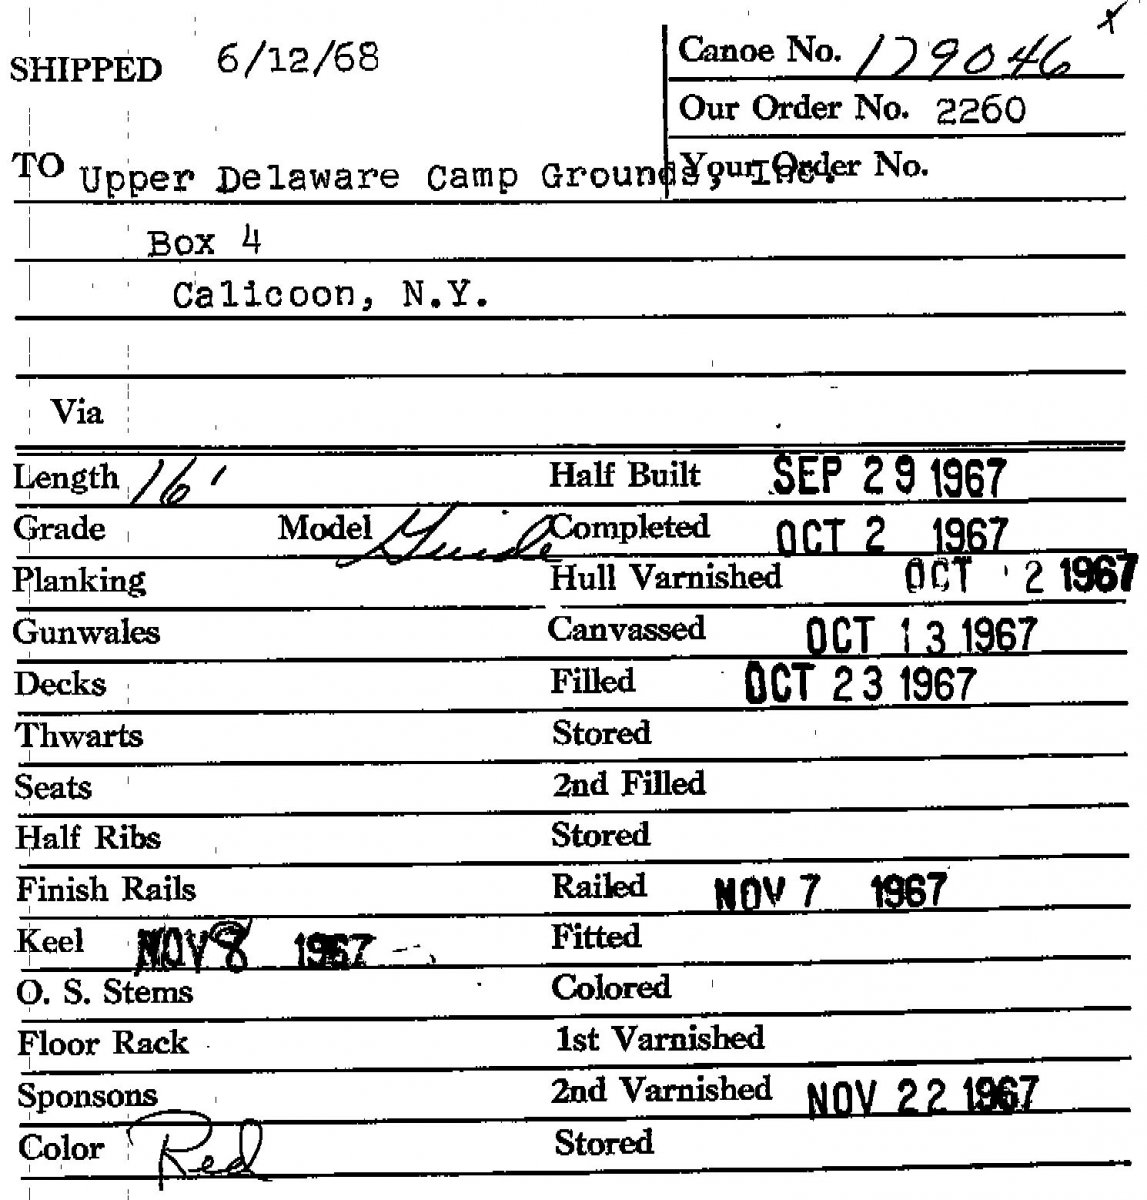 SHIPPED 6/12/68 Canoe No. 179046 x
Our Order No. 2260
TO Upper Delaware Camp Grounds, Inc. Your Order No.
Box 4
Calicoon, N.Y.
Via
Length 16' Half Built SEP 29 1967
Grade Model Guide Completed OCT 2 1967
Planking Hull Varnished OCT 2 1967
Gunwales Canvassed OCT 13 1967
Decks Filled OCT 23 1967
Thwarts Stored
Seats 2nd Filled
Half Ribs Stored
Finish Rails Railed NOV 7 1967
Keel NOV 8 1967 Fitted
O. S. Stems Colored
Floor Rack 1st Varnished
Sponsons 2nd Varnished NOV 22 1967
Color Red Stored